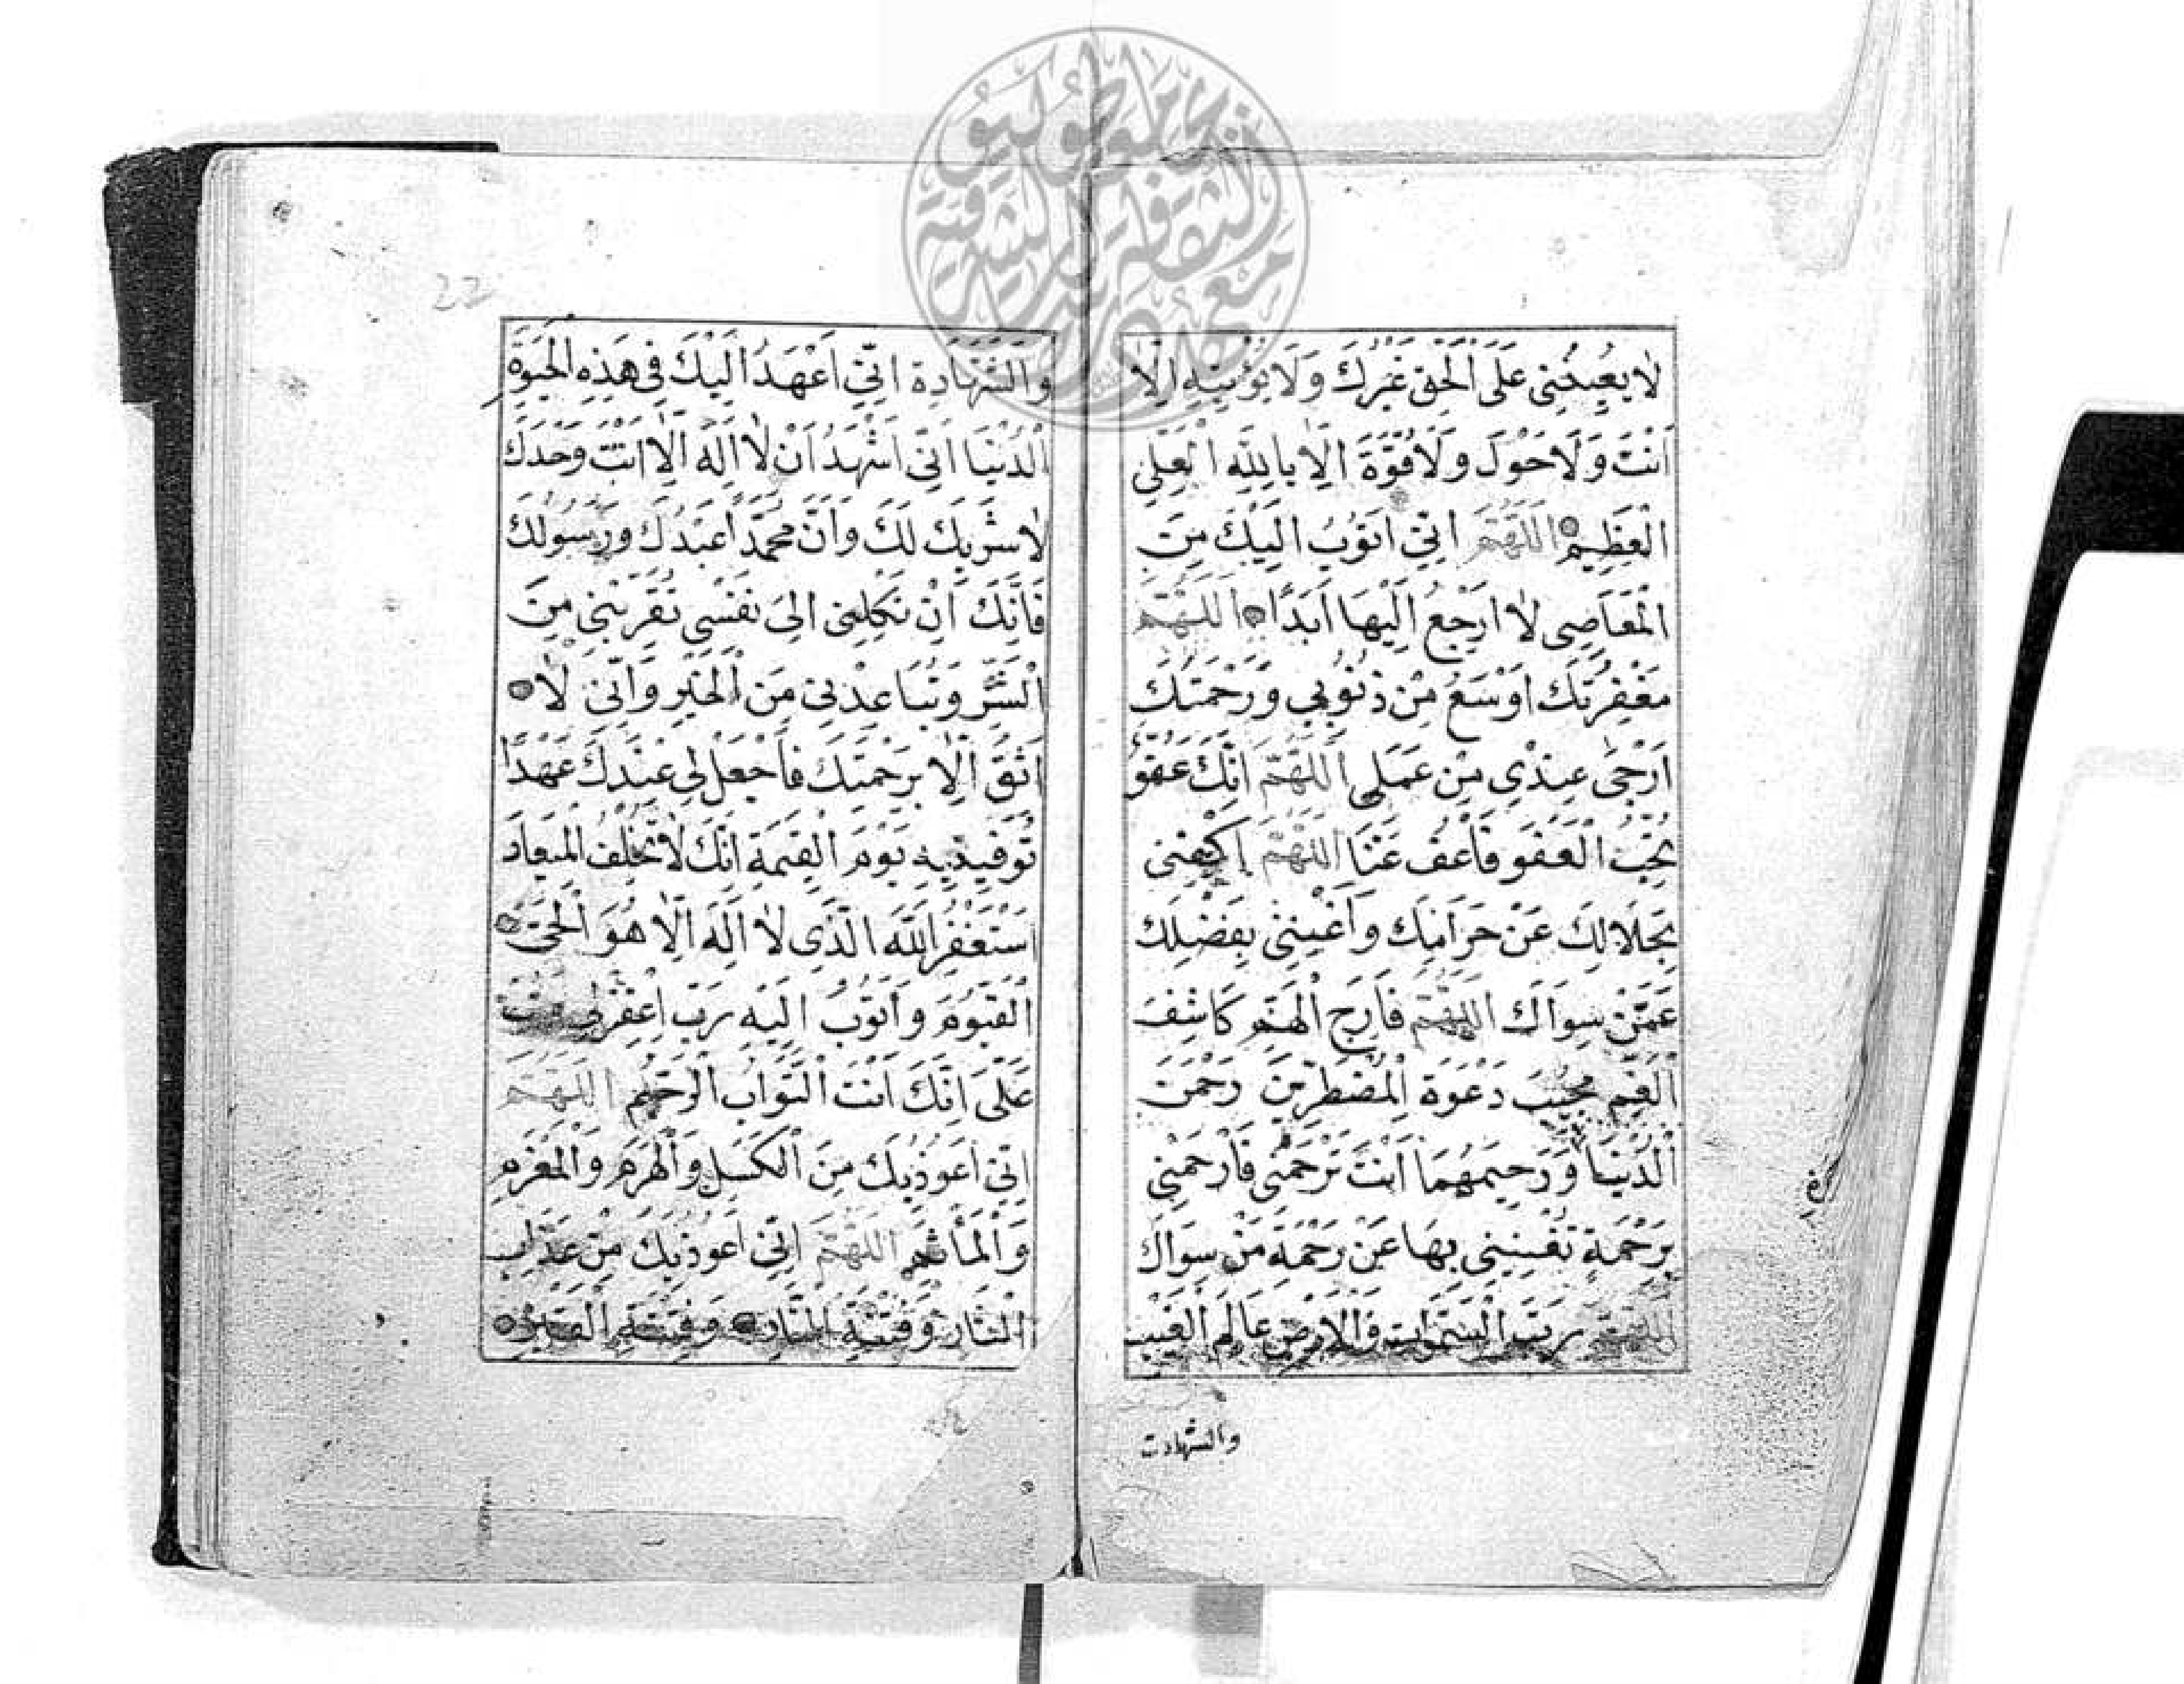 لَا يُعِينُنِى عَلَى الْحَقِّ غَيْرُكَ وَلَا يُؤْتِيْهِ اِلَّا
اَنْتَ وَلَا حَوْلَ وَلَا قُوَّةَ اِلَّا بِاللّٰهِ الْعَلِىِّ
الْعَظِيْمِ اَللّٰهُمَّ اِنِّى اَتُوْبُ اِلَيْكَ مِنَ
الْمَعَاصِى لَا اَرْجِعُ اِلَيْهَا اَبَدًا اَللّٰهُمَّ
مَغْفِرَتُكَ اَوْسَعُ مِنْ ذُنُوْبِى وَرَحْمَتُكَ
اَرْجٰى عِنْدِى مِنْ عَمَلِى اَللّٰهُمَّ اِنَّكَ عَفُوٌّ
تُحِبُّ الْعَفْوَ فَاعْفُ عَنَّا اَللّٰهُمَّ اِكْفِنِى
بِحَلَالِكَ عَنْ حَرَامِكَ وَاَغْنِنِى بِفَضْلِكَ
عَمَّنْ سِوَاكَ اَللّٰهُمَّ فَارِجَ الْهَمِّ كَاشِفَ
الْغَمِّ مُجِيْبَ دَعْوَةِ الْمُضْطَرِّيْنَ رَحْمٰنَ
الدُّنْيَا وَرَحِيْمَهُمَا اَنْتَ تَرْحَمُنِى فَارْحَمْنِى
بِرَحْمَةٍ تُغْنِيْنِى بِهَا عَنْ رَحْمَةِ مَنْ سِوَاكَ
اَللّٰهُمَّ رَبَّ السَّمٰوَاتِ وَالْاَرْضِ عَالِمَ الْغَيْبِ
والشهادت
وَالشَّهَادَةِ اِنِّى اَعْهَدُ اِلَيْكَ فِى هٰذِهِ الْحَيٰوةِ
الدُّنْيَا اَنِّى اَشْهَدُ اَنْ لَا اِلٰهَ اِلَّا اَنْتَ وَحْدَكَ
لَا شَرِيْكَ لَكَ وَاَنَّ مُحَمَّدًا عَبْدُكَ وَرَسُوْلُكَ
فَاِنَّكَ اِنْ تَكِلْنِى اِلٰى نَفْسِى تُقَرِّبْنِى مِنَ
الشَّرِّ وَتُبَاعِدْنِى مِنَ الْخَيْرِ وَاِنِّى لَا
اَثِقُ اِلَّا بِرَحْمَتِكَ فَاجْعَلْ لِى عِنْدَكَ عَهْدًا
تُوَفِّيْنِيْهِ يَوْمَ الْقِيٰمَةِ اِنَّكَ لَا تُخْلِفُ الْمِيْعَادَ
اَسْتَغْفِرُ اللّٰهَ الَّذِى لَا اِلٰهَ اِلَّا هُوَ الْحَىَّ
الْقَيُّوْمَ وَاَتُوْبُ اِلَيْهِ رَبِّ اِغْفِرْلِى وَتُبْ
عَلَىَّ اِنَّكَ اَنْتَ التَّوَّابُ الرَّحِيْمُ اَللّٰهُمَّ
اِنِّى اَعُوْذُ بِكَ مِنَ الْكَسَلِ وَالْهَرَمِ وَالْمَغْرَمِ
وَالْمَأْثَمِ اَللّٰهُمَّ اِنِّى اَعُوْذُ بِكَ مِنْ عَذَابِ
النَّارِ وَفِتْنَةِ النَّارِ وَفِتْنَةِ الْقَبْرِ
22